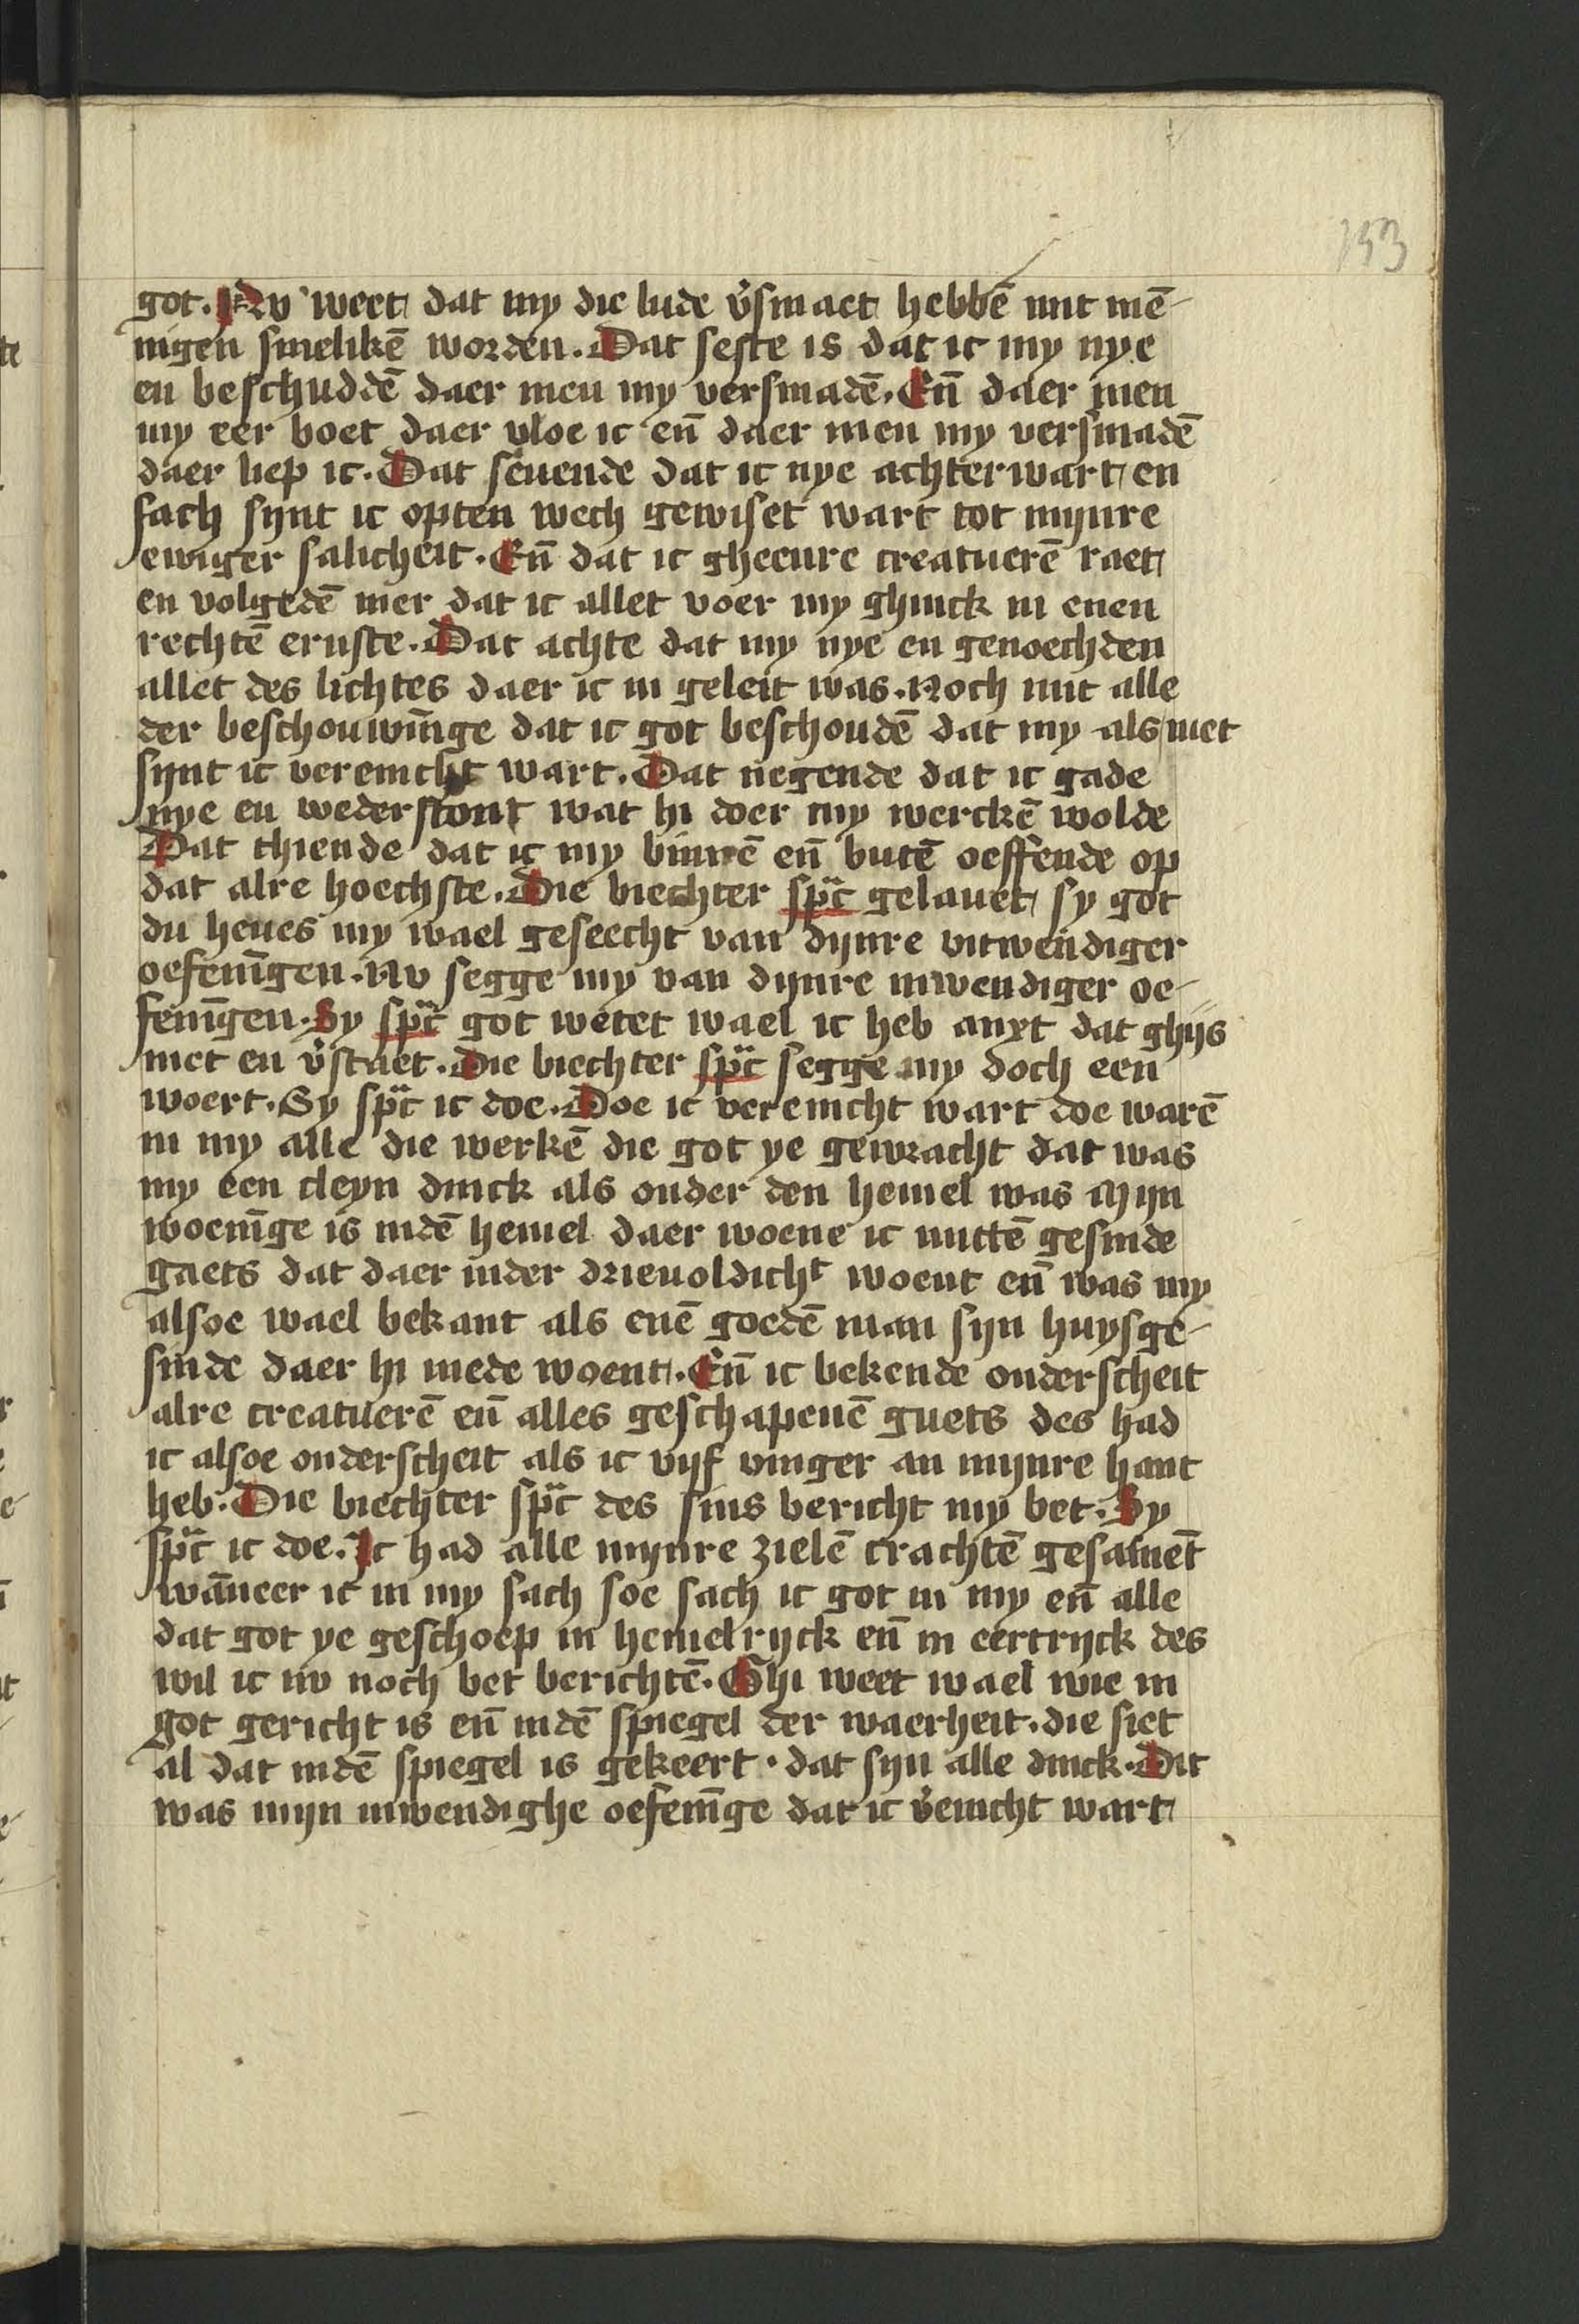 153
got. Nv weet dat my die lude v̉smaet hebbē mit mē-
nigen smelikē worden. Dat seste is dat ic my nye
en beschuddē daer men my versmadē. Eñ daer men
my eer boet daer vloe ic eñ daer men my versmadē
daer liep ic. Dat seuende dat ic nye achterwart en
sach sijnt ic opten wech gewiset wart tot mijnre
ewiger salicheit. Eñ dat ic gheenre creatuerē raet
en volgedē mer dat ic allet voer my ghinck in enen
rechtē ernste. Dat achte dat my nye en genoechden
allet des lichtes daer ic in geleit was. Noch mit alle
der beschouwīnge dat ic got beschoudē dat my als niet
sijnt ic vereinicht wart. Dat negende dat ic gade
nye en wederstont wat hi doer my werckē wolde
Dat thiende dat ic my binnē eñ butē oeffende op
dat alre hoechste. Die biechter sp̃c gelauet sy got
du heues my wael geseecht van dijnre vitwendiger
oefenīgen. Nv segge my van dijnre inwendiger oe-
fenīgen. Sy sp̃c got wetet wael ic heb anxt dat ghijs
niet en v̉staet. Die biechter sp̃c segge my doch een
woert. Sy sp̃c ic doe. Doe ic vereinicht wart doe warē
in my alle die werkē die got ye gewracht dat was
my een cleyn dinck als onder den hemel was Mijn
woenīge is indē hemel daer woene ic mittē gesinde
gaets dat daer inder drieuoldichᵗ woent eñ was my
alsoe wael bekant als enē goedē man sijn huysge-
sinde daer hi mede woent. Eñ ic bekende onderscheit
alre creatuerē eñ alles geschapenē guets des had
ic alsoe onderscheit als ic vijf vinger an mijnre hant
heb. Die biechter sp̃c des sins bericht my bet. Sy
sp̃c ic doe. Ic had alle mijnre zielē crachtē gesament
wāneer ic in my sach soe sach ic got in my eñ alle
dat got ye geschoep in hemelrijck eñ in eertrijck des
wil ic uv noch bet berichtē. Ghi weet wael wie in
got gericht is eñ indē spiegel der waerheit. die siet
al dat indē spiegel is gekeert. dat sijn alle dinck. Dit
was mijn inwendighe oefenīge dat ic v̉enicht wart